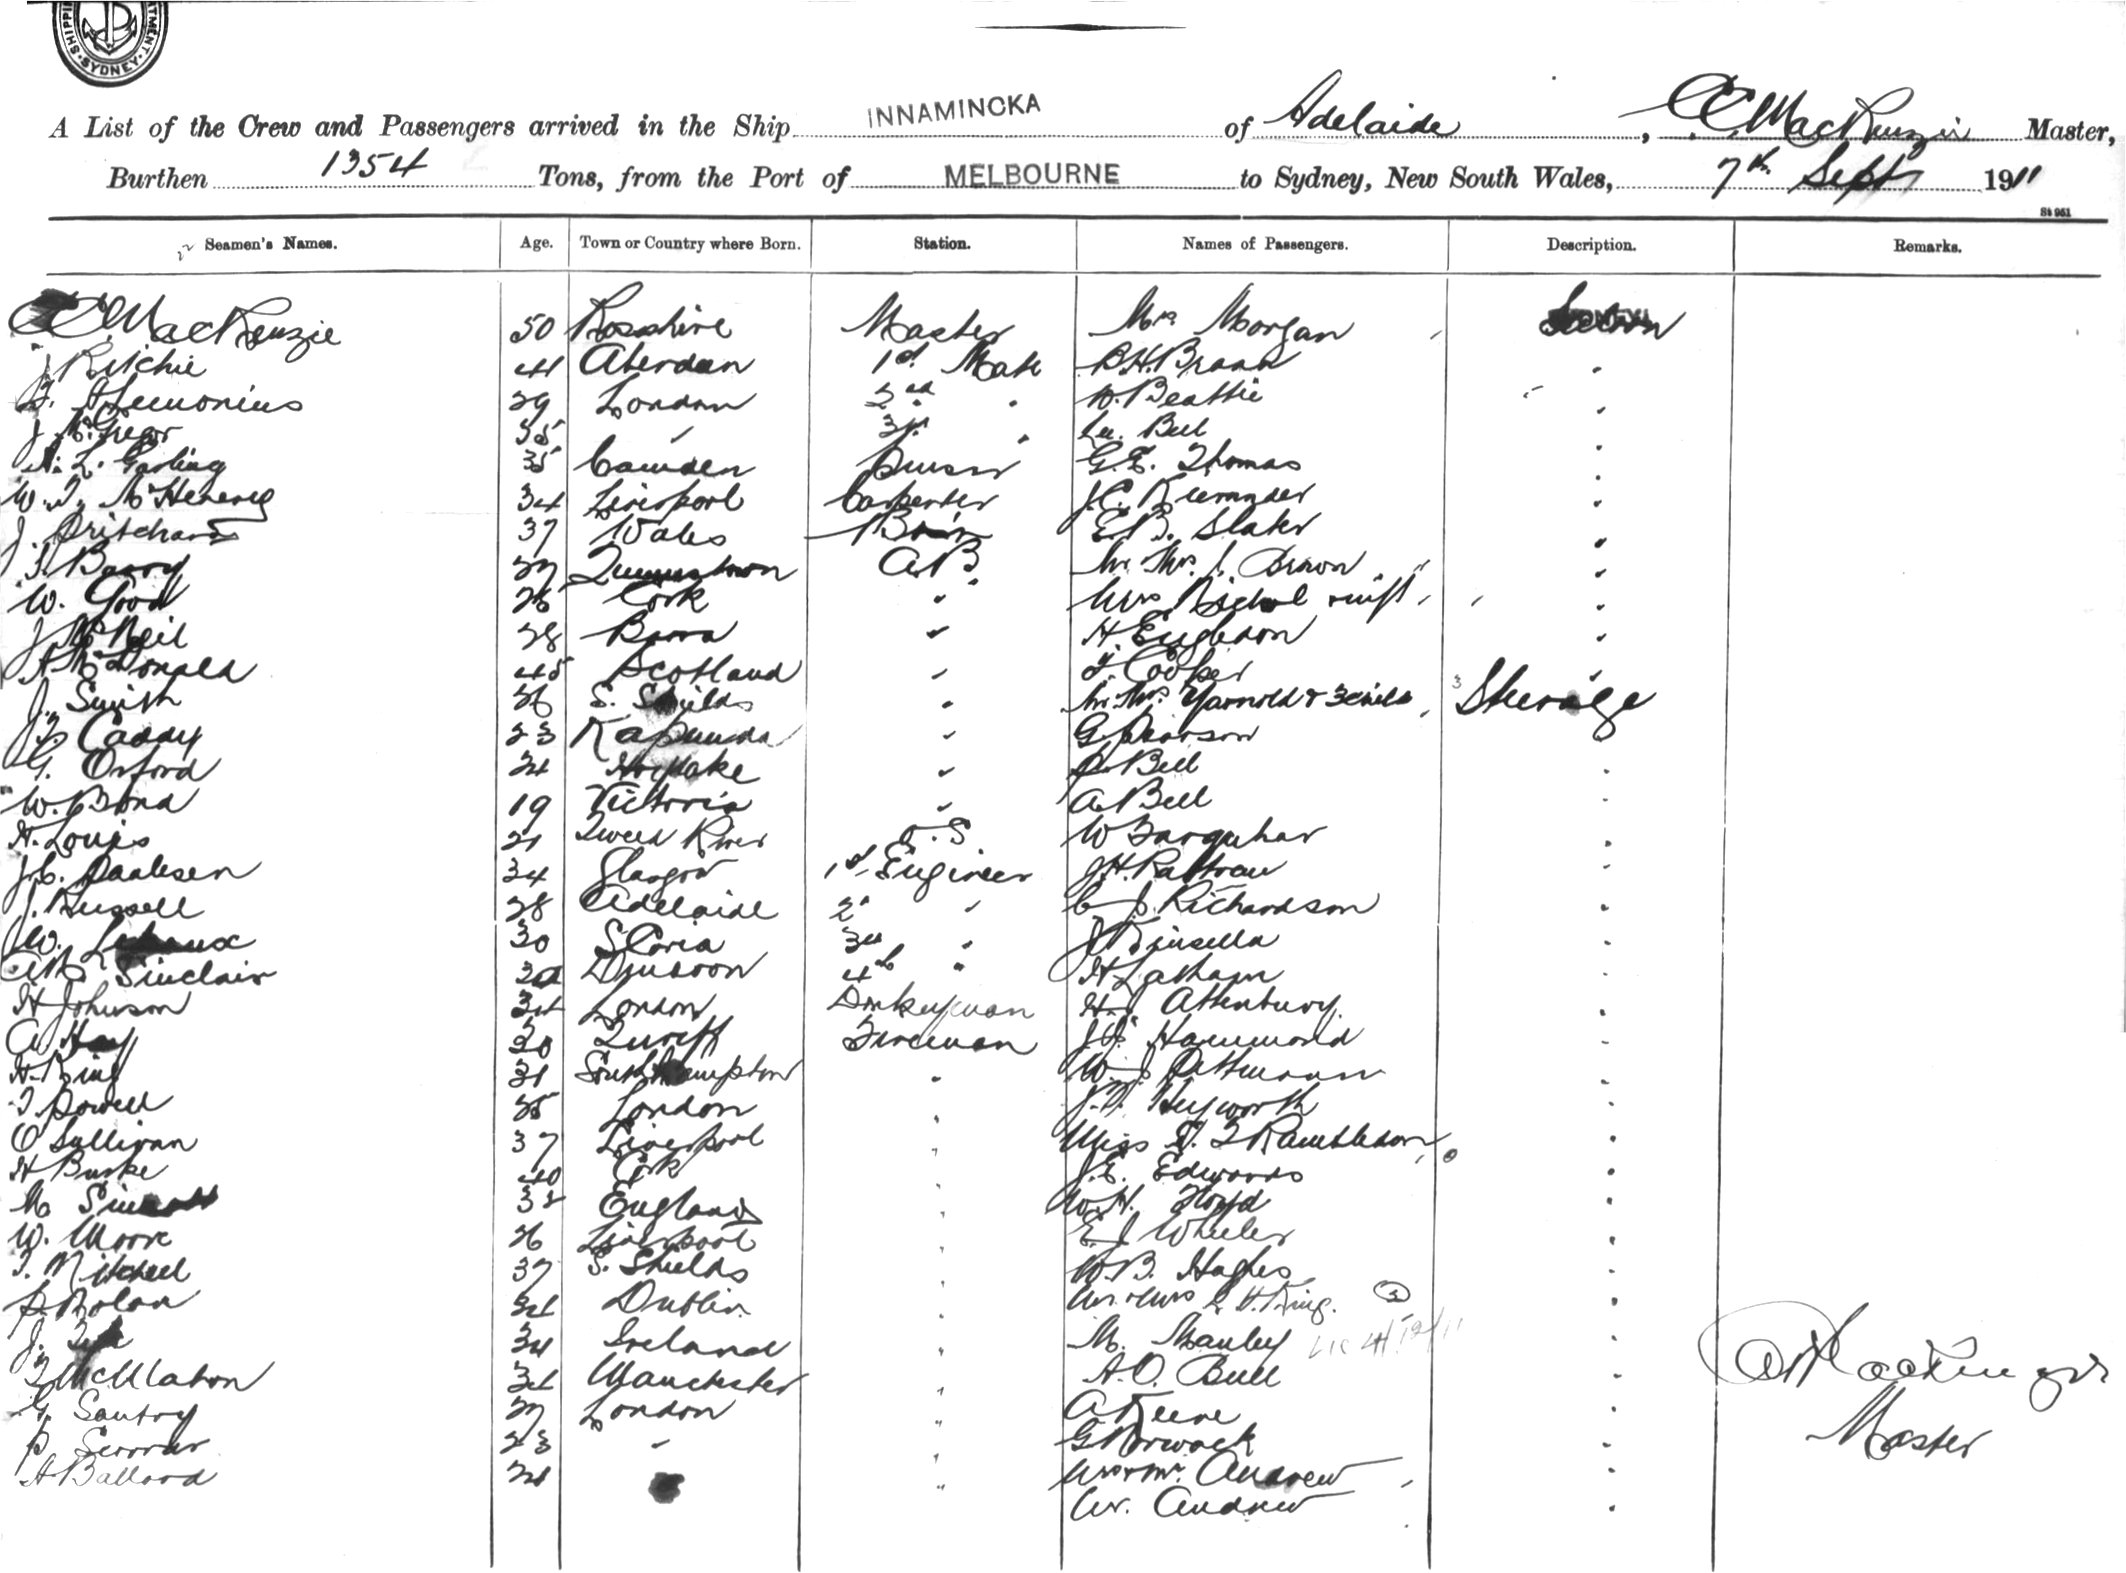 SHIPPING DEPARTMENT SYDNEY
A List of the Crew and Passengers arrived in the Ship INNAMINCKA of Adelaide, MacKenzie Master,
Burthen 1354 Tons, from the Port of MELBOURNE to Sydney, New South Wales, 7th Sept 1911
St 951
Seamen's Names. Age. Town or Country where Born. Station. Names of Passengers. Description. Remarks.
MacKenzie 50 Rosshire Master Mrs Morgan Saloon
J Ritchie 41 Aberdeen 1st Mate B.H.
29 London 2nd " W. Beattie
J McGregor 35 " 3rd " Bell
L. Garling 35 Camden Purser G.E. Thomas
W. J. McHenery 34 Liverpool Carpenter J.C.
J. Pritchard 37 Wales E.B. Slater
J. Barry 27 Queenstown A.B Mr Mrs J. Brown
W. Good 26 Cork " Mrs
J McNeil 28 Barra " H
A McDonald 45 Scotland " T Cooper
J. Smith 26 S. Shields " Mr Mrs Yarnold & 3 childn Steerage
Caddy 23 Kapunda " G Pearson
G. Orford 24 Hoylake " P Bell
W. Bond 19 Victoria " A Bell
H. Louis 21 Tweed River O.S. W Farquhar
J.C. Paulsen 34 Glasgow 1st Engineer J.H. Rattrau
J. Russell 28 Adelaide 2d " C J. Richardson
W. 30 Scoria 3rd " J Kinsella
Sinclair Dunoon 4th " H Latham
H Johnson 34 London Donkeyman H J Attenbury
A Hay 30 Turiff Fireman J Hammond
H. King 31 Southampton " W. J. Pittmann
T Powell 25 London " J. Heyworth
O Sullivan 37 Liverpool " Miss
H Burke 40 Cork " J.E. Edwards
M 32 England " W. H. Floyd
W. Moore 26 Liverpool " E J Wheeler
T. Mitchell 37 S. Shields " W.B. Hughes
P. Nolan 31 Dublin " Mr & Mrs H. King. 3
J. 34 Ireland " M. Manley
McMahon 31 Manchester " A.O. Bull
G. Santry 27 London " A Keene
P 23 " " G Norwack
H Ballard 21 " Mrs & Mr. Andrew
Mr. Andrew
MacKenzie
Master